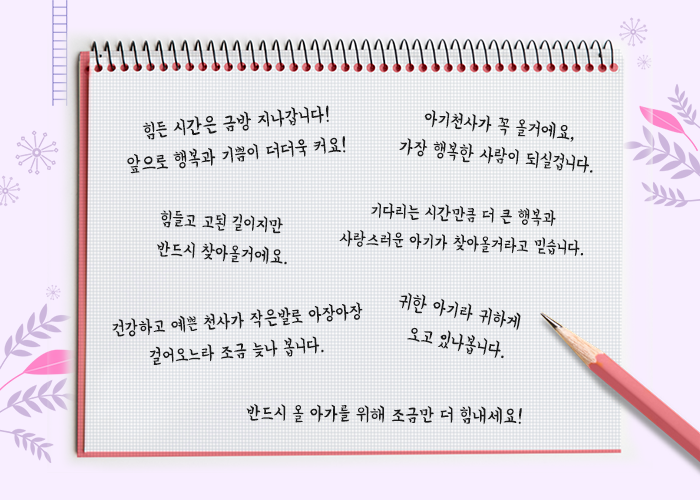 힘든 시간은 금방 지나갑니다!
앞으로 행복과 기쁨이 더더욱 커요!
아기천사가 꼭 올거에요,
가장 행복한 사람이 되실겁니다.
힘들고 고된 길이지만
반드시 찾아올거에요.
기다리는 시간만큼 더 큰 행복과
사랑스러운 아기가 찾아올거라고 믿습니다.
건강하고 예쁜 천사가 작은발로 아장아장
걸어오느라 조금 늦나 봅니다.
귀한 아기라 귀하게
오고 있나봅니다.
반드시 올 아가를 위해 조금만 더 힘내세요!